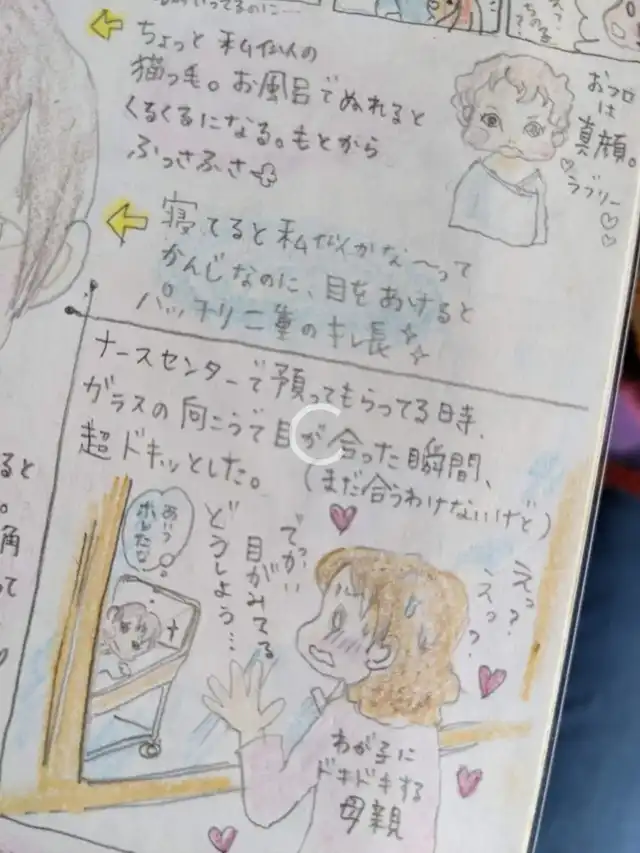 ちょっと私似の
猫っ毛。お風呂でぬれると
くるくるになる。もとから
ふっさふさ
おフロ
は
真顔。
ラブリー
寝てると私似かな〜って
かんじなのに、目をあけると
パッチリ二重のキレ長
ナースセンターで預ってもらってる時、
ガラスの向こうで目が合った瞬間、
超ドキッとした。
(まだ合うわけないけど)
えっ?
えっ?
でっかい
目がみてる
どうしよう…
あいつ
ホレたな
わが子に
ドキドキする
母親
ると
角
って